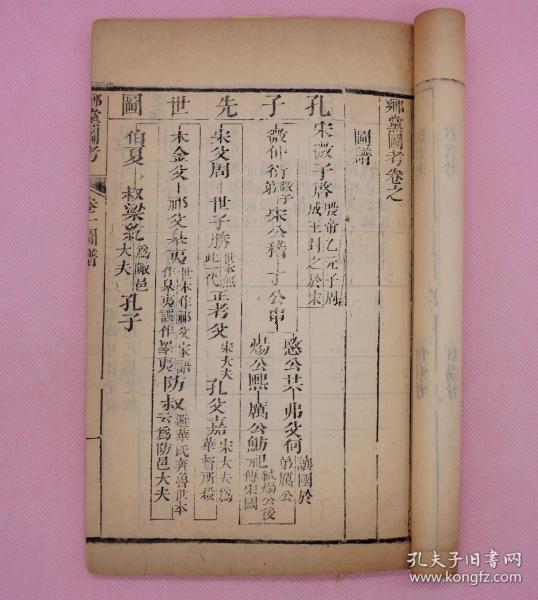 鄉黨圖考卷之
圖譜
孔子先世圖
宋微子啓殷帝乙元子周成王封之於宋
微仲衍微子弟
宋公稽
丁公申
湣公共
弗父何讓國於弟厲公
煬公熙
厲公鮒祀弑煬公後祀傳宋國
宋父周
世子勝世本無此一代
正考父宋大夫
孔父嘉宋大夫爲華督所殺
木金父
祁父睪夷世本作祁父家語作睪夷誤作睪夷
防叔避華氏奔魯世本云爲防邑大夫
伯夏
叔梁紇爲陬邑大夫
孔子
鄉黨圖考
圖譜
孔夫子旧书网
www.kongfz.com